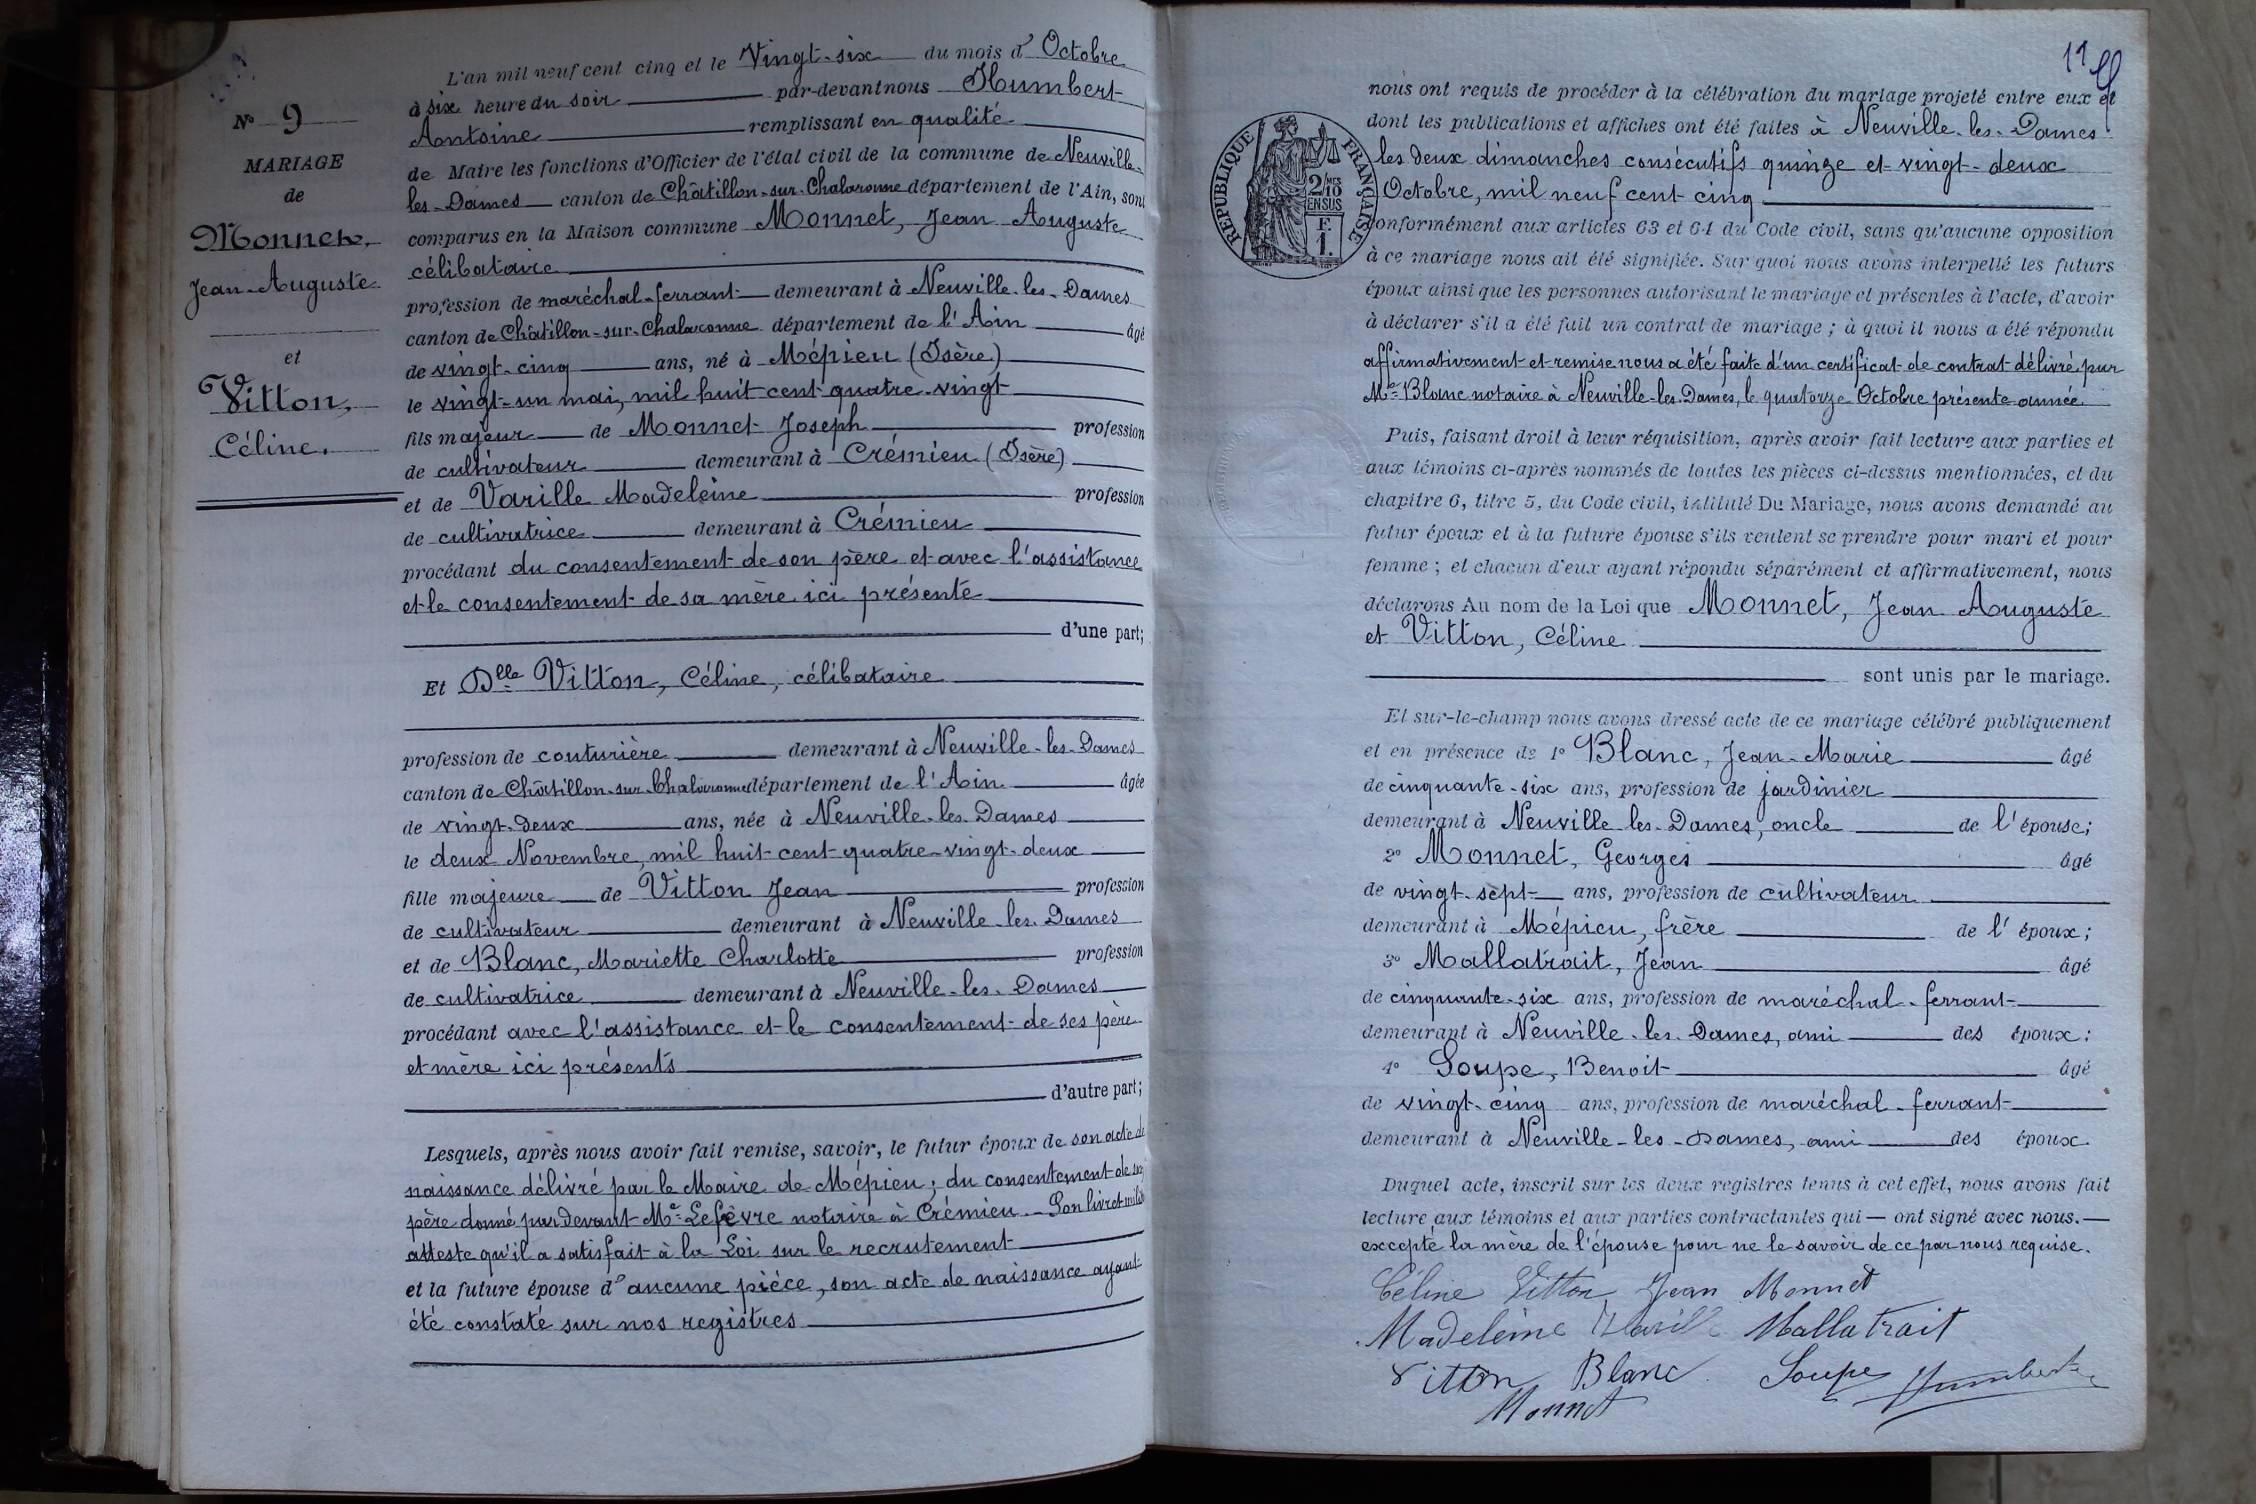 N° 9
MARIAGE
de
Monnet,
Jean-Auguste
et
Vitton,
Céline.
L'an mil neuf cent cinq et le Vingt-six du mois d'Octobre
à six heure du soir par-devant nous Humbert
Antoine remplissant en qualité
de Maire les fonctions d'Officier de l'état civil de la commune de Neuville-
les-Dames canton de Châtillon-sur-Chalaronne département de l'Ain, sont
comparus en la Maison commune Monnet, Jean Auguste
célibataire
profession de maréchal-ferrant demeurant à Neuville-les-Dames
canton de Châtillon-sur-Chalaronne département de l'Ain âgé
de vingt-cinq ans, né à Mépieu (Isère)
le vingt-un mai, mil huit cent quatre-vingt
fils majeur de Monnet Joseph profession
de cultivateur demeurant à Crémieu (Isère)
et de Varille Madeleine profession
de cultivatrice demeurant à Crémieu
procédant du consentement de son père et avec l'assistance
et le consentement de sa mère ici présente
d'une part;
Et Dlle Vitton, Céline, célibataire
profession de couturière demeurant à Neuville-les-Dames
canton de Châtillon-sur-Chalaronne département de l'Ain âgée
de vingt-deux ans, née à Neuville-les-Dames
le deux Novembre, mil huit-cent-quatre-vingt-deux
fille majeure de Vitton Jean profession
de cultivateur demeurant à Neuville-les-Dames
et de Blanc, Mariette Charlotte profession
de cultivatrice demeurant à Neuville-les-Dames
procédant avec l'assistance et le consentement de ses père
et mère ici présents
d'autre part;
Lesquels, après nous avoir fait remise, savoir, le futur époux de son acte de
naissance délivré par le Maire de Mépieu; du consentement de son
père donné pardevant Me Lefèvre notaire à Crémieu. Son livret
atteste qu'il a satisfait à la Loi sur le recrutement
et la future épouse d'aucune pièce, son acte de naissance ayant
été constaté sur nos registres
11
nous ont requis de procéder à la célébration du mariage projeté entre eux et
dont les publications et affiches ont été faites à Neuville-les-Dames
les deux dimanches consécutifs quinze et vingt-deux
Octobre, mil neuf cent cinq
conformément aux articles 63 et 64 du Code civil, sans qu'aucune opposition
à ce mariage nous ait été signifiée. Sur quoi nous avons interpellé les futurs
époux ainsi que les personnes autorisant le mariage et présentes à l'acte, d'avoir
à déclarer s'il a été fait un contrat de mariage; à quoi il nous a été répondu
affirmativement et remise nous a été faite d'un certificat de contrat délivré par
Me Blanc notaire à Neuville-les-Dames, le quatorze Octobre présente année.
RÉPUBLIQUE FRANÇAISE
2/10 MES
EN SUS
F.
1.
Puis, faisant droit à leur réquisition, après avoir fait lecture aux parties et
aux témoins ci-après nommés de toutes les pièces ci-dessus mentionnées, et du
chapitre 6, titre 5, du Code civil, intitulé Du Mariage, nous avons demandé au
futur époux et à la future épouse s'ils veulent se prendre pour mari et pour
femme; et chacun d'eux ayant répondu séparément et affirmativement, nous
déclarons Au nom de la Loi que Monnet, Jean Auguste
et Vitton, Céline
sont unis par le mariage.
Et sur-le-champ nous avons dressé acte de ce mariage célébré publiquement
et en présence de 1° Blanc, Jean-Marie âgé
de cinquante-six ans, profession de jardinier
demeurant à Neuville les-Dames, oncle de l'épouse;
2° Monnet, Georges âgé
de vingt-sept ans, profession de cultivateur
demeurant à Mépieu, frère de l'époux;
3° Mallatrait, Jean âgé
de cinquante-six ans, profession de maréchal-ferrant
demeurant à Neuville-les-Dames, ami des époux;
4° Soupe, Benoit âgé
de vingt-cinq ans, profession de maréchal-ferrant
demeurant à Neuville-les-Dames, ami des époux
Duquel acte, inscrit sur les deux registres tenus à cet effet, nous avons fait
lecture aux témoins et aux parties contractantes qui — ont signé avec nous. —
excepté la mère de l'épouse pour ne le savoir de ce par nous requise.
Céline Vitton Jean Monnet
Madeleine Varille Mallatrait
Vitton Blanc Soupe Humbert
Monnet